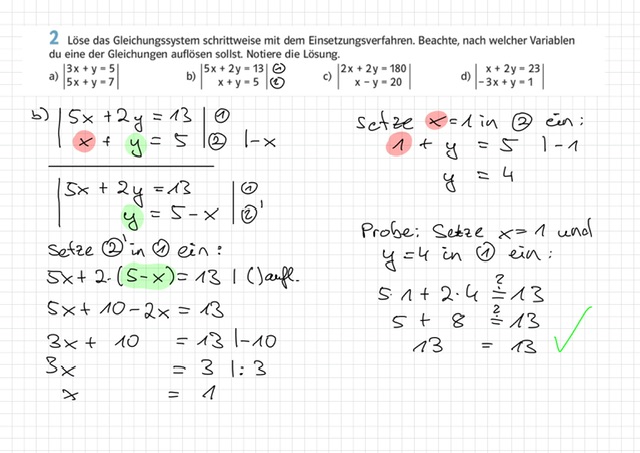 2 Löse das Gleichungssystem schrittweise mit dem Einsetzungsverfahren. Beachte, nach welcher Variablen
du eine der Gleichungen auflösen sollst. Notiere die Lösung.
a) |3x + y = 5|
|5x + y = 7|
b) |5x + 2y = 13| ①
|x + y = 5| ②
c) |2x + 2y = 180|
|x − y = 20|
d) |x + 2y = 23|
|−3x + y = 1|
b) |5x + 2y = 13| ①
|x + y = 5| ② |-x
|5x + 2y = 13| ①
|y = 5 - x| ②'
Setze ②' in ① ein:
5x + 2·(5-x) = 13 | () aufl.
5x + 10 - 2x = 13
3x + 10 = 13 |-10
3x = 3 |:3
x = 1
Setze x=1 in ② ein:
1 + y = 5 |-1
y = 4
Probe: Setze x=1 und
y=4 in ① ein:
5·1 + 2·4 ≟ 13
5 + 8 ≟ 13
13 = 13 ✓